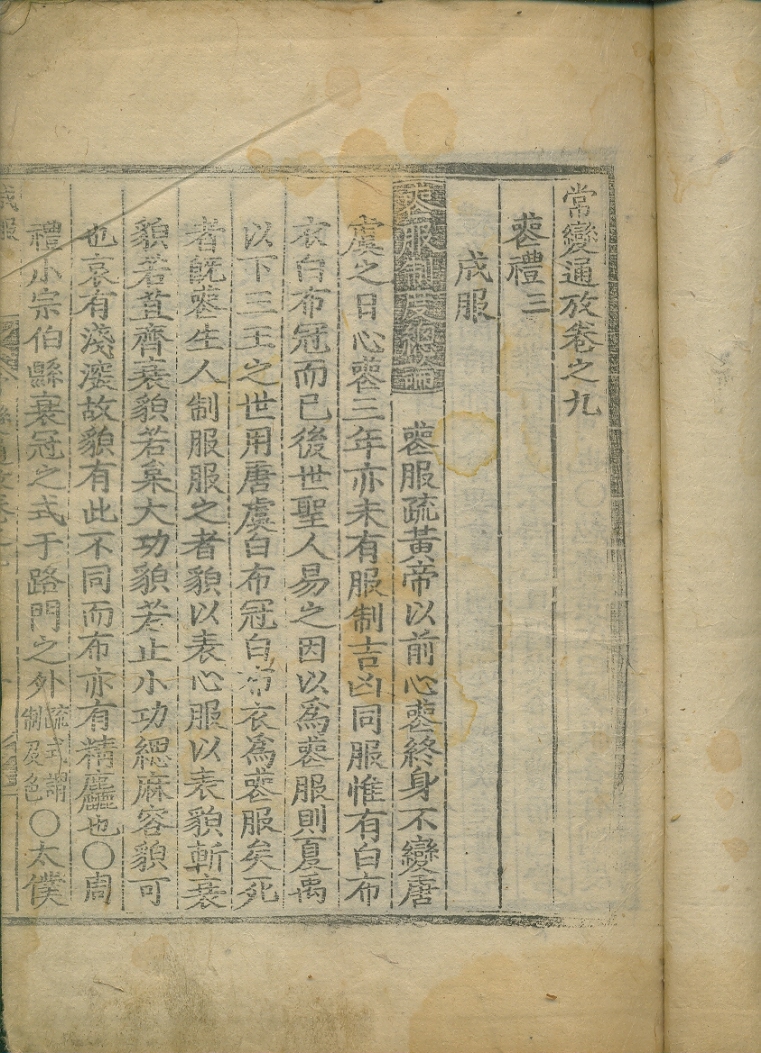 常變通攷卷之九
喪禮三
成服
喪服制度總論 喪服疏黃帝以前心喪終身不變唐
虞之日心喪三年亦未有服制吉凶同服惟有白布
衣白布冠而已後世聖人易之因以爲喪服則夏禹
以下三王之世用唐虞白布冠白布衣爲喪服矣死
者旣喪生人制服服之者貌以表心服以表貌斬衰
貌若苴齊衰貌若枲大功貌若止小功緦麻容貌可
也哀有淺深故貌有此不同而布亦有精麤也〇周
禮小宗伯縣衰冠之式于路門之外疏式謂制及色〇太僕
成服